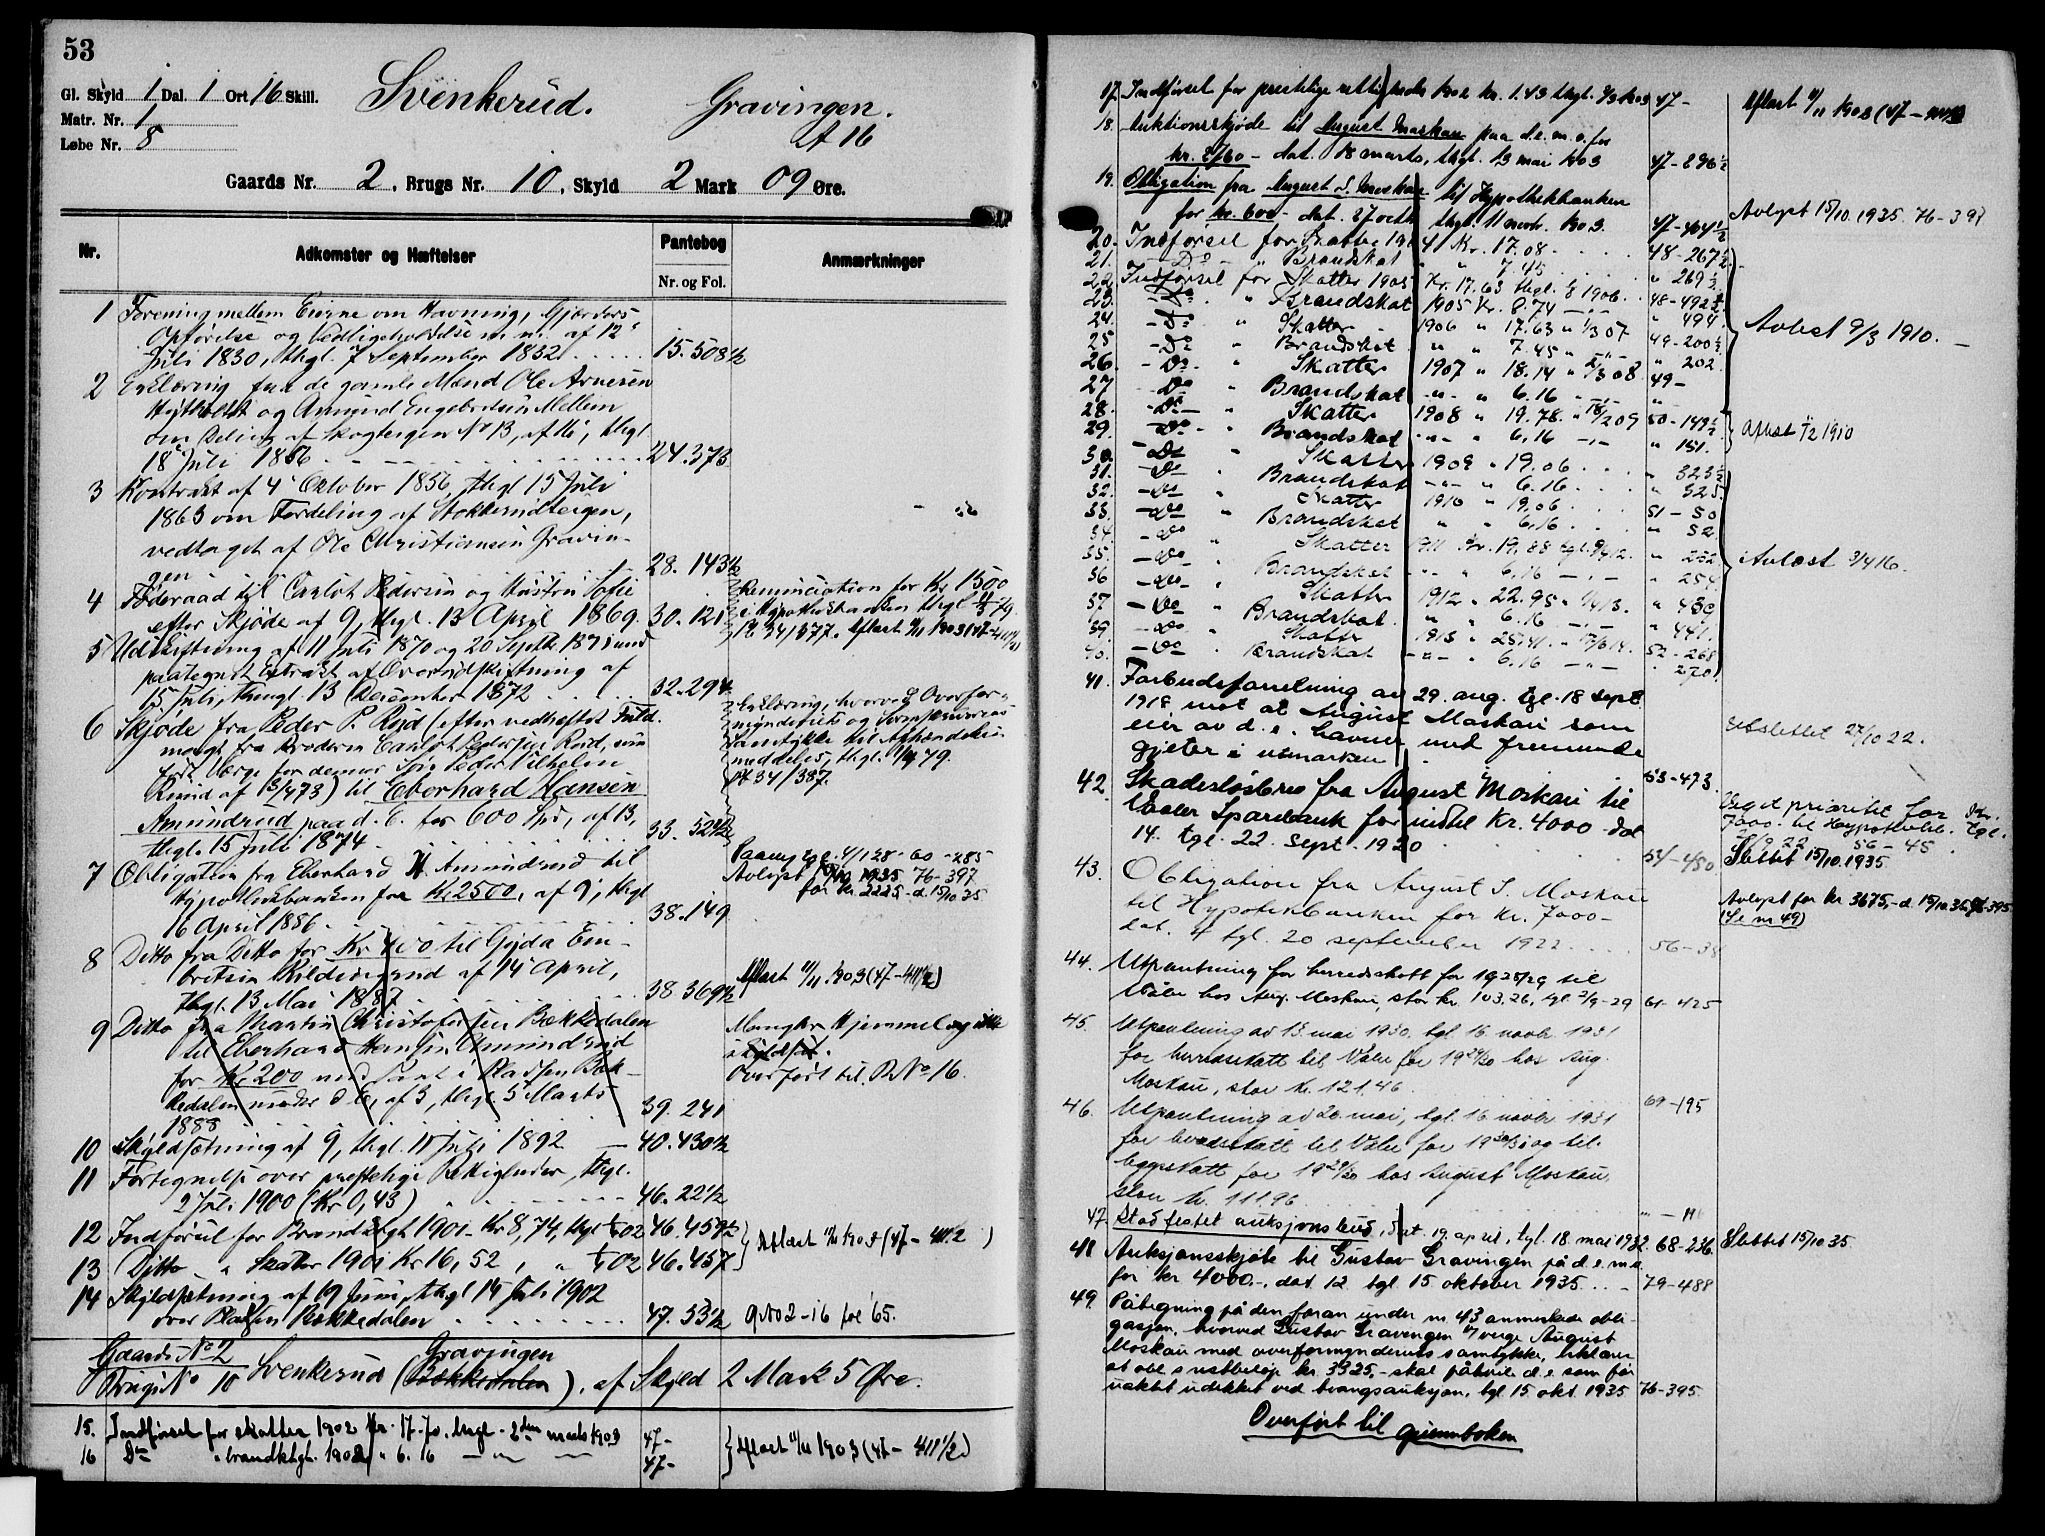 53
Gl. Skyld 1 Dal. 1 Ort 16 Skill.
Svenkerud. Gravingen.
Matr. Nr. 1
Løbe Nr. 8
A 16
Gaards Nr. 2, Brugs Nr. 10, Skyld 2 Mark 09 Øre.
Nr. Adkomster og Hæftelser Pantebog Nr. og Fol. Anmærkninger
1 Forening mellem Eierne om Havning, Gjærders
Opførelse og Vedligeholdelse m. m. af 12
Juli 1830, thgl. 7 September 1832 15. 508½
2 Erklæring fra de gamle Mænd Ole Arnesen
og Amund Engebretsen Mellem
om Deling af Skogteigen No 13, thgl.
18 Juli 1856 24. 373
3 Kontrakt af 4 Oktober 1856, thgl. 15 Juli
1863 om Fordeling af Stokkerudteigen,
vedtaget af Ole Christiansen Gravin-
gen 28. 143½
4 Føderaad til Carlot Pedersen og Hustru Sofie
efter Skjøde af 9, thgl. 13 April 1869. 30. 121
Renunciation for Kr. 1500
i Hypothekbanken thgl.
Pt. 34/377. Aflæst 11/11 1903
5 Udskiftning af 11 Juli 1870 og 20 Septbr 1871 med
paategnet Extrakt af Overudskiftning af
15 Juli, thingl. 13 December 1872 32. 294
6 Skjøde fra Peder P. Rud (efter vedheftet Fuld-
magt fra Broderen Carlot Pedersen Rud, som
født Værge for dennes Søn Peder Vilhelm
Ruud af 13/4 73) til Eberhard Hansen
Amundrud paa d. E. for 600 Spd., af 13,
thgl. 15 Juli 1874 33. 52½
Erklæring, hvorved Overfor-
mynderiets og
Samtykke til Afhændelsen
meddeles, thgl. 79.
Pt 34/387.
7 Obligation fra Eberhard H. Amundrud til
Hypothekbanken for Kr. 2500, af 9, thgl.
16 April 1886 38. 149
Paany tgl. 4/1 28 - 60 - 285
Avlyst 15/10 1935 76-397
for kr. 2225 - d. 15/10 35
8 Ditto fra Ditto for Kr. 400 til Gyda Em-
bretsen Kildingsund af 14 April,
thgl. 13 Mai 1887 38 369½
Aflæst 11/11 1903 (47-411½)
9 Ditto fra Martin Christofersen Bækkedalen
til Eberhard Hansen Amundrud
for Kr. 200 med Pant i Pladsen Bæk-
kedalen under d. E., af 3, thgl. 5 Marts
1888 39. 241
Mangler Hjemmel og ikke
i Skyldsat.
Overført til B.No 16.
10 Skyldsætning af 9, thgl. 11 Juli 1892 40. 430½
11 Fortegnelse over prestelige Rettigheder, thgl.
2 Juli 1900 (Kr 0,43) 46. 22½
12 Indførsel for Brandktgt 1901 Kr 8,74, thgl. 02 46. 457½
13 Ditto " Skatter 1901 Kr 16,52, " 02 46. 457
Aflæst 11/11 1903 (47-411½)
14 Skyldsætning af 19 Juni, thgl. 14 Juli 1902
over Pladsen Bækkedalen 47. 53½ GNo 2-16 fol 65.
Gaards No 2 Gravingen
Brugs No 10 Svenkerud (Bækkedalen), af Skyld 2 Mark 5 Øre.
15. Indførsel for skatter 1902 Kr. 17-70, thgl. 2den marts 1903 47-
16 Do " brandktgt. 1902 " 6.16 47-
Aflæst 11/11 1903 (47-411½)
17. Indførsel for prestelige rettigheder 1902 kr. 1.43 thgl. 2/3 1903 47-
Aflæst 11/11 1903 (47-411½)
18. Auktionsskjøde til August Moskau paa d. e. m. o. for
kr. 2760 - dat. 18 marts, thgl. 13 mai 1903 47-296½
19. Obligation fra August S. Moskau til Hypothekbanken
for kr. 600 - dat. 27 octbr thgl. 11 novb. 1903. 47-464½
Avlyst 15/10 1935 76-397
20. Indførsel for Skatter 1904 Kr. 17.08 48-267½
21. - Do - " Brandskat " " 7.45 " 269½
22. Indførsel for Skatter 1905 Kr. 17.63 thgl. 1906 48-492½
23. - Do " Brandskat 1905 Kr. 8.74 " 494
24 - Do " Skatter 1906 " 17.63 " 1/3 07 49-200½
25 - Do " Brandskat " " 7.45 " 202
26. - Do. " Skatter 1907 " 18.14 " 08 49-
27 - Do " Brandskat " " 6.16
Avlæst 9/3 1910.
28. - Do - " Skatter 1908 " 19.78 " 09 50-149½
29. - Do - " Brandskat " " 6.16 " 151.
Aflæst 1/2 1910
30. - Do " Skatter 1909 " 19.06 " 323½
31. - Do " Brandskat " " 6.16 " 325
32. - Do " Skatter 1910 " 19,06 51-50
33. - Do " Brandskat " " 6,16 " 52
34 - Do " Skatter 1911 kr. 19,88 tgl. 12. " 252
35. - Do " Brandskat " 6,16 " 254
36 - Do - " Skatter 1912 " 22.95 " 13. " 439
37 - Do " Brandskat " " 6.16 " 441.
39. - Do " Skatter 1913 " 25.41 " 14. 52-268
40. - Do " Brandskat " 6.16 " 270
Avlæst 3/4 16.
41. Forbudsforretning av 29. aug. tgl. 18 sept.
1918 mot at August Moskau som
eier av d. e. havner med fremmede
gjeter i utmarken 53-473.
Utslettet 27/10 22.
42. Skadesløsbrev fra August Moskau til
Våler Sparebank for indtil kr. 4000 dat
14. tgl. 22. sept. 1920 54-480
Veget prioritet for kr.
7000 til Hypotekbk. tgl.
22 56-45.
Slettet 15/10 1935.
43. Obligation fra August S. Moskau
til Hypotekbanken for kr. 7000-
dat. 4 tgl. 20 september 1922 56-38
Avlyst for kr 3675,- d. 15/10 35 76-395
(Se nr 49)
44. Utpantning for herredsskatt for 1928/29 til
Våler hos Aug. Moskau, stor kr. 103,26, tgl. 2/9-29 61-425
45. Utpantning av 13. mai 1930, tgl. 16 novbr. 1931
for herredsskatt til Våler for 1929/30 hos Aug.
Moskau, stor kr. 121,46. 69-195
46. Utpantning av 20. mai, tgl. 16 novbr 1931
for herredsskatt til Våler for 1930/31 og til-
leggsskatt for 1929/30 hos August Moskau,
stor kr. 111,96
47. Stadfestet auksjonsbud, dat. 19. april, tgl. 18 mai 1932. 68-236 Slettet 15/10 35
48 Auksjonsskjøte til Gustav Gravingen på d. e. m. o.
for kr 4000.-, dat. 12. tgl. 15. oktober 1935 79-488
49. Påtegning på den foran under nr 43 anmerkede obli-
gasjon, hvorved Gustav Gravingen v/ verge August
Moskau med overformynderiets samtykke, erklærer
at obl.s restbeløp kr. 3325,- skal påhvile d. e. som før
uaktet udekket ved tvangsauksjon, tgl. 15. okt. 1935 76-395.
Overført til grunnboken